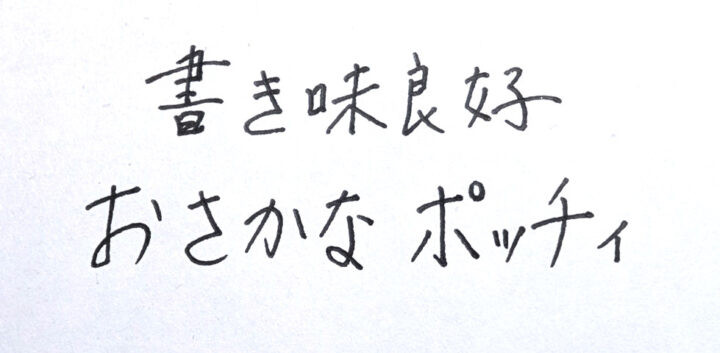 書き味良好
おさかな ポッチィ